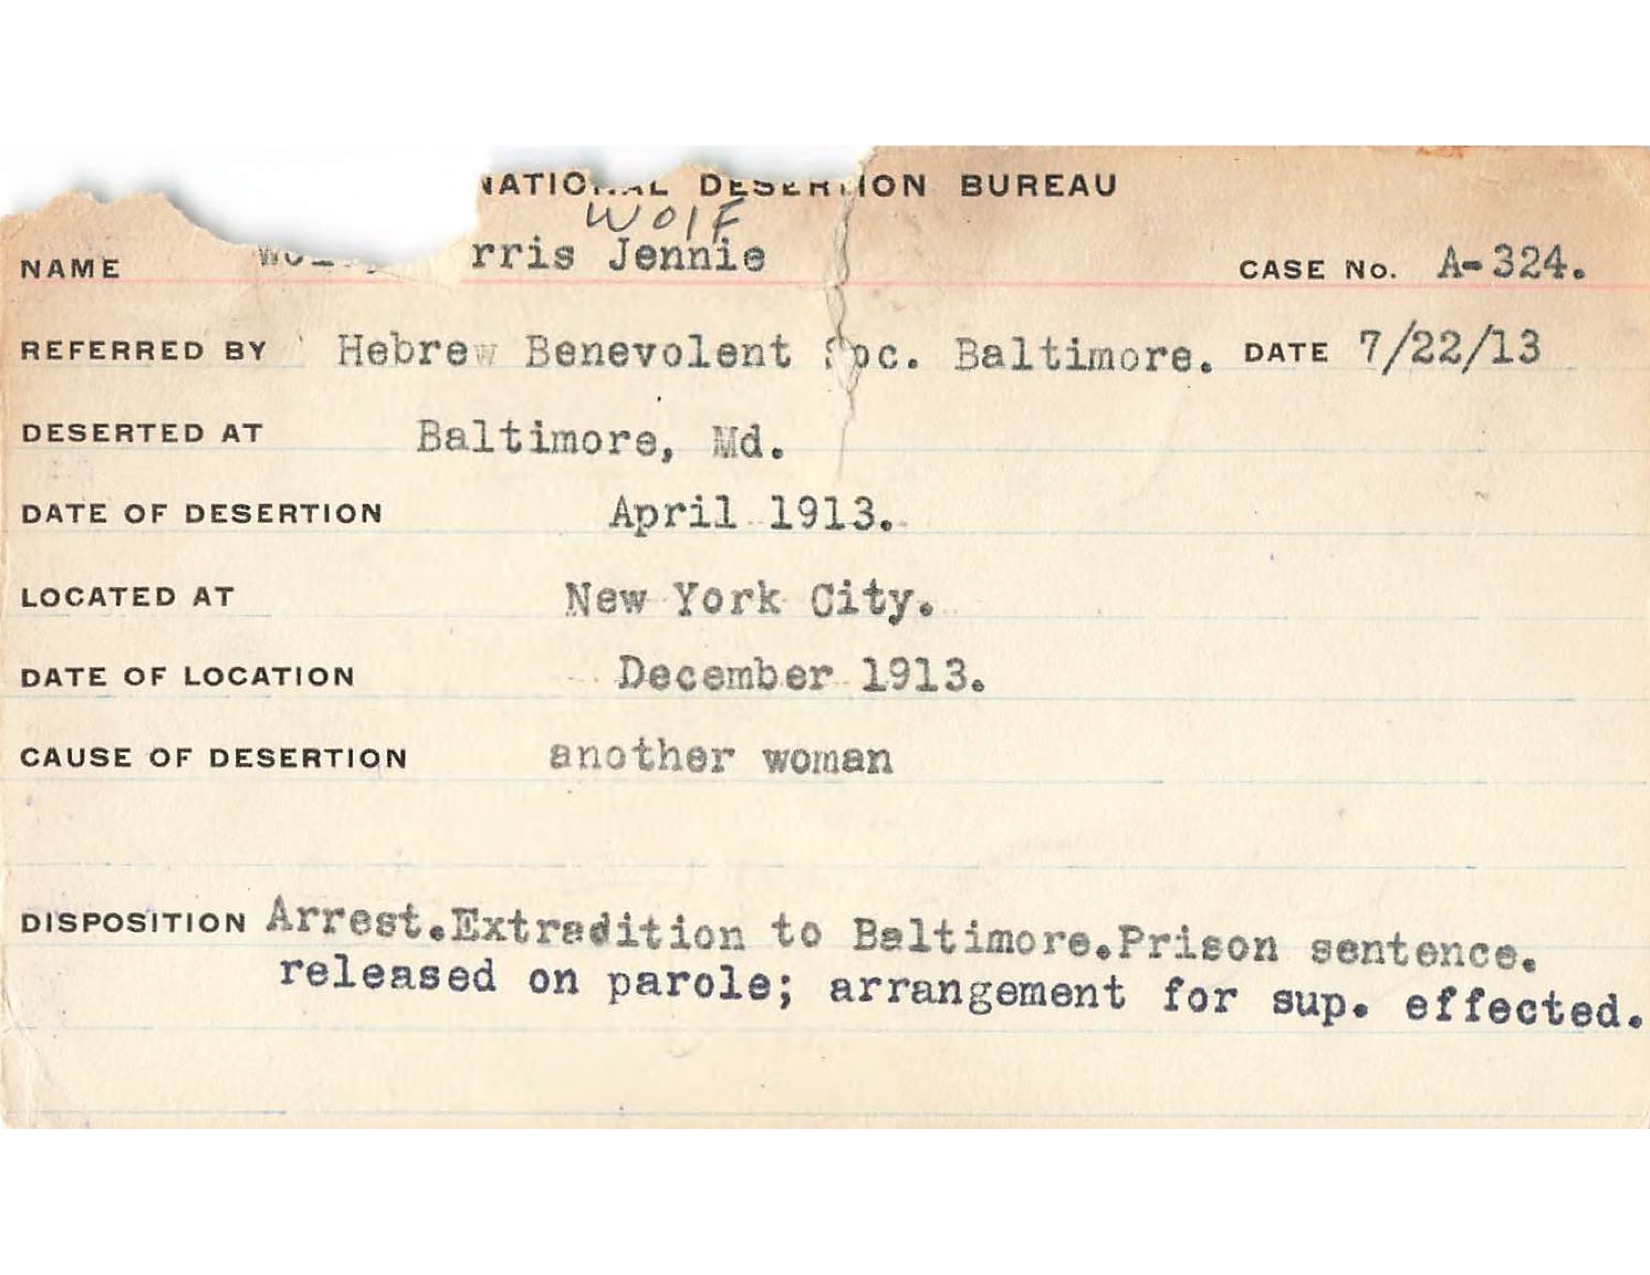 NATIONAL DESERTION BUREAU
WOlF
NAME rris Jennie CASE No. A-324.
REFERRED BY Hebrew Benevolent Soc. Baltimore. DATE 7/22/13
DESERTED AT Baltimore, Md.
DATE OF DESERTION April 1913.
LOCATED AT New York City.
DATE OF LOCATION December 1913.
CAUSE OF DESERTION another woman
DISPOSITION Arrest.Extradition to Baltimore.Prison sentence.
released on parole; arrangement for sup. effected.